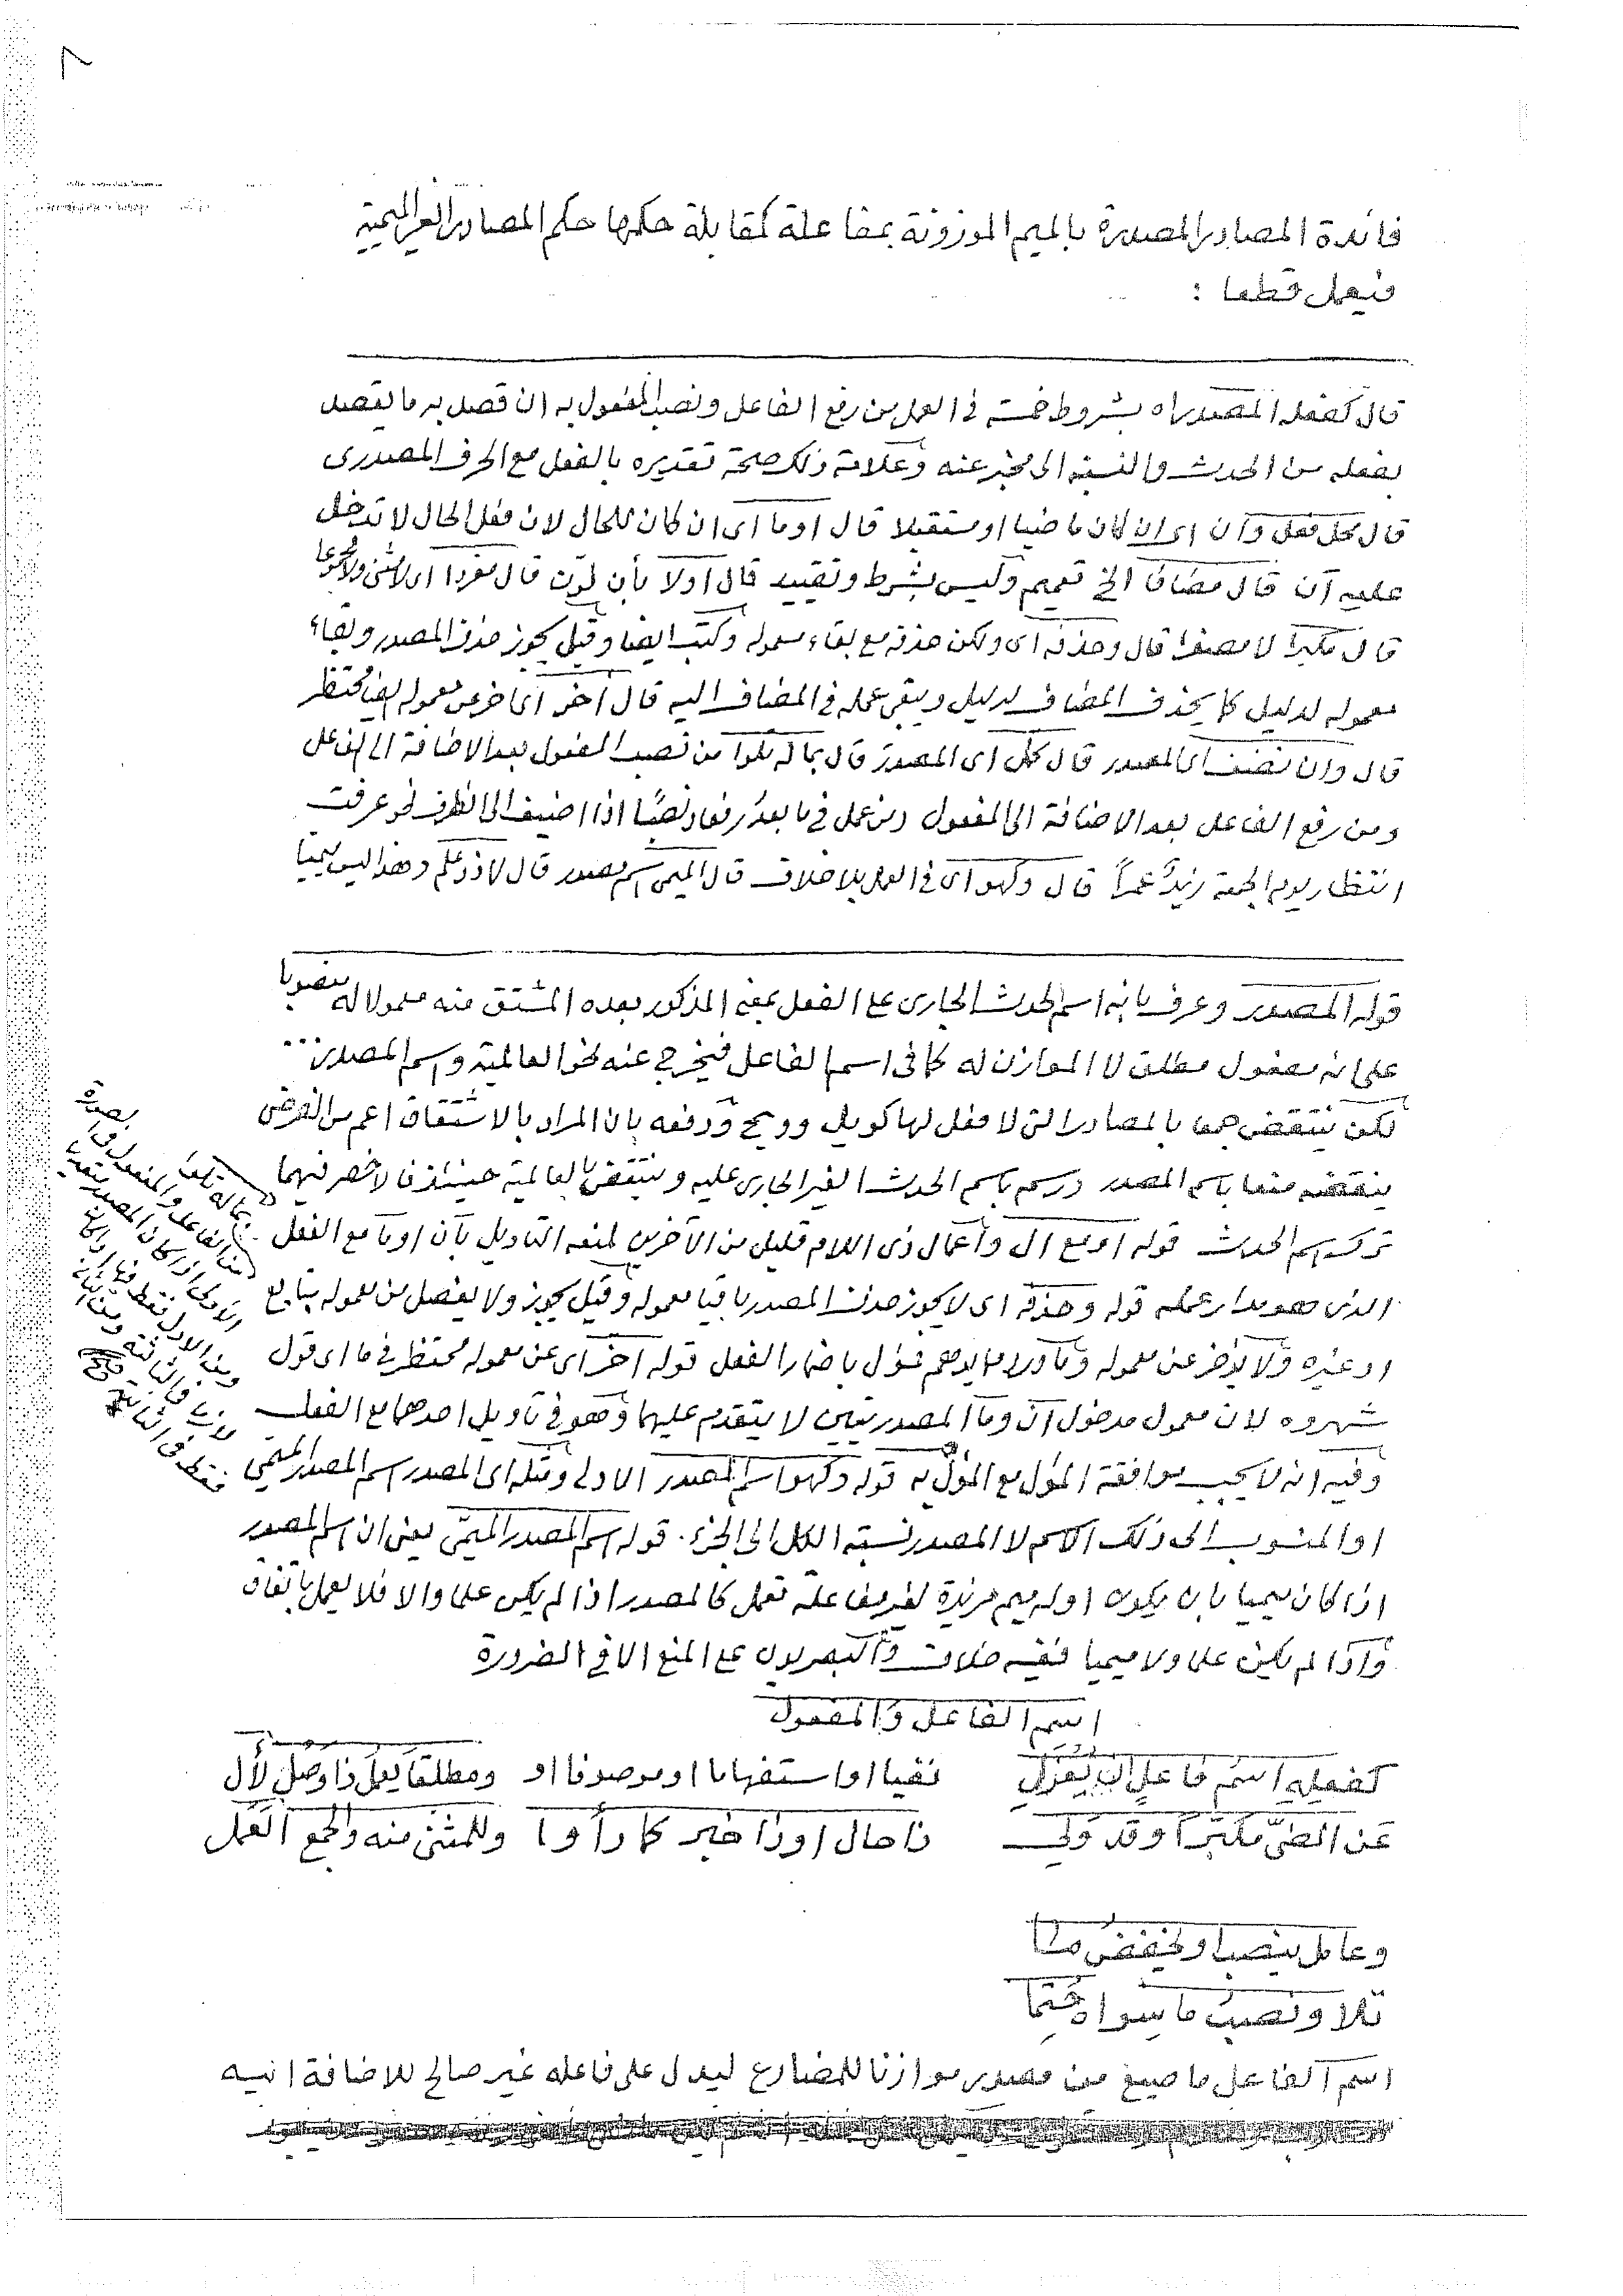 فائدة المصادر المصدرة بالميم الموزونة بمفاعلة كمقابلة حكمها حكم المصادر الغير الميمية
فيعمل قطعا :
قال كفعله المصدر اه بشروط خمسة فى العمل من رفع الفاعل ونصب المفعول به ان قصد به ما يقصد
بفعله من الحدث والنسبة الى مخبر عنه وعلامة ذلك صحة تقديره بالفعل مع الحرف المصدرى
قال محل فعل وان اى ان كان ماضيا او مستقبلا قال او ما اى ان كان للحال لان فعل الحال لا تدخل
عليه ان قال مضافا الخ تعميم وليس بشرط وتقييد قال اولا بأن نون قال مفردا اى لا مثنى ولا مجموعا
قال مكبرا لا مصغرا قال وحذفه اى ولكن حذفه مع بقاء معموله وكتب ايضا وقيل يجوز حذف المصدر وبقاء
معموله لدليل كما يحذف المضاف لدليل ويبقى عمله فى المضاف اليه قال اخر اى اخر عن معموله ايضا محتظر
قال وان تضف اى المصدر قال كمل اى المصدر قال بما له تلوا من نصب المفعول بعد الاضافة الى الفاعل
ومن رفع الفاعل بعد الاضافة الى المفعول ومن عمل فى ما بعد رفعا ونصبا اذا اضيف الى الظرف نحو عرفت
انتظار يوم الجمعة زيدٌ عمراً قال وكهو اى فى العمل بلا خلاف قال الميمى اسم مصدر قال لا ذو علم وهذا ليس ميميا
قوله المصدر وعرف بانه اسم الحدث الجارى على الفعل بمعنى المذكور بعده المشتق منه معمولا له منصوبا
على انه مفعول مطلق لا الموازن له كما فى اسم الفاعل فيخرج عنه نحو العالمية واسم المصدر
لكن ينتقض جمعا بالمصادر التى لا فعل لها كويل وويح ودفعه بان المراد بالاشتقاق اعم من الفرضى
ينقضه منعا باسم المصدر ورسم باسم الحدث الغير الجارى عليه وينتقض بالعالمية حينئذ فالاخصر فيهما
ترك اسم الحدث قوله او مع ال واعمال ذى اللام قليل من الآخرين لمنعه التاويل بأن او ما مع الفعل
الذى هو مدار عمله قوله وحذفه اى لا يجوز حذف المصدر باقيا معموله وقيل يجوز ولا يفصل من معموله بتابع
او غيره ولا يؤخر عن معموله وما ورد مما يوهم فمؤل باضمار الفعل قوله اخر اى عن معموله محتظر فى ما اى قول
شهروه لان معمول مدخول ان وما المصدريتين لا يتقدم عليهما وهو فى تاويل احدهما مع الفعل
وفيه انه لا يجب موافقة المؤل مع المؤل به قوله وكهو اسم المصدر الاولى ومثله اى المصدر اسم المصدر الميمى
او المنسوب الى ذلك الاسم لا المصدر نسبة الكل الى الجزء . قوله اسم المصدر الميمى يعنى ان اسم المصدر
اذا كان ميميا بان يكون اوله ميم مزيدة لغير مفاعلة تعمل كالمصدر اذا لم يكن علما والا فلا يعمل باتفاق
واذا لم يكن علما ولا ميميا ففيه خلاف والبصريون على المنع الا فى الضرورة
بماله تلوا
اسم الفاعل والمفعول
كفعلِهِ اسمُ فاعلٍ ان يُعْزَلِ نفيا او استفهاما او موصوفا او ومطلقا يعمل ذا وصل لأل
عَن المضىِّ مكبّراً وقد وَلِى ذا حال او ذا خبر كما رأوا وللمثنى منه والجمع العمل
وعامل ينصبا ويخفضُ ما
تلا ونصبُ ما سواه حُتِما
اسم الفاعل ما صيغ من مصدر موازنا للمضارع ليدل على فاعله غير صالح للاضافة اليه